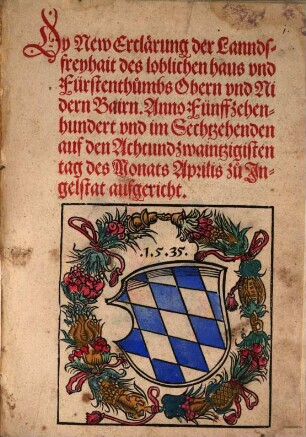 Dy New Erclärung der Lannds-
freyhait des loblichen haus vnd
Fürstenthůmbs Obern vnd Ni
dern Bairn. Anno Fünffzehen-
hundert vnd im Sechtzehenden
auf den Achtundzwaintzigisten
tag des Monats Aprilis zů In-
gelstat aufgericht.
.1.5.35.